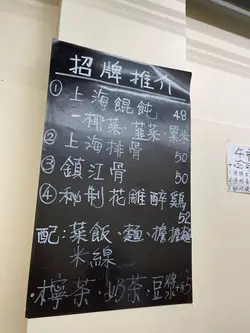 招牌推介
① 上海餛飩 48
-椰菜·韮菜·粟米
② 上海排骨 50
③ 鎮江骨 50
④ 秘制花雕醉鷄 52
配:菜飯、麵、擔擔麵
米線
·檸茶·奶茶·豆漿+$5